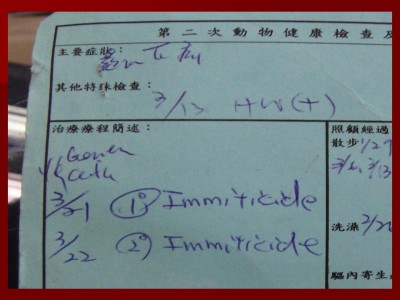 第二次動物健康檢查及
主要症狀:
其他特殊檢查:
3/13 HW(+)
治療療程簡述:
照顧經過
散步 1/29
3/21 ① Immiticide
洗澡 3/22
3/22 ② Immiticide
驅內寄生